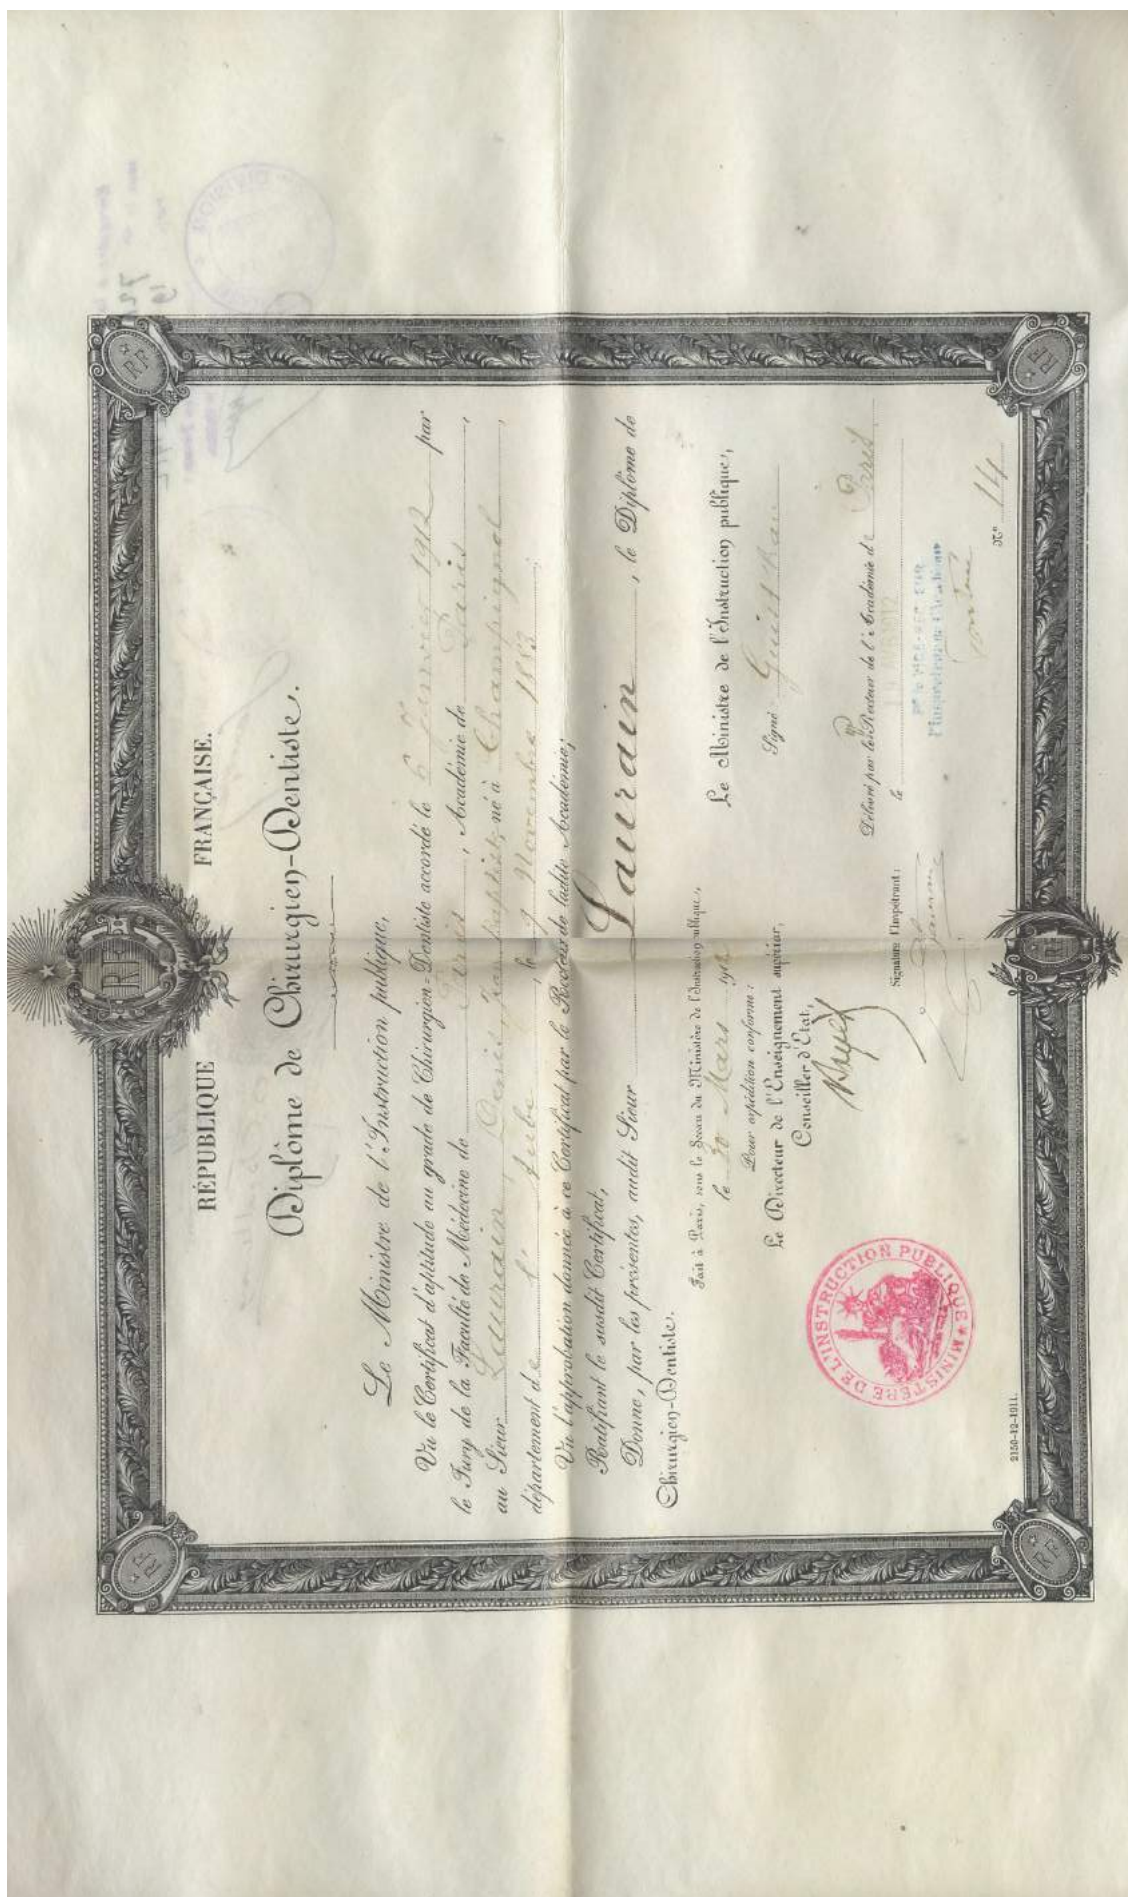 RÉPUBLIQUE FRANÇAISE.
Diplôme de Chirurgien-Dentiste.
Le Ministre de l'Instruction publique,
Vu le Certificat d'aptitude au grade de Chirurgien-Dentiste accordé le 6 Janvier 1912 par
le Jury de la Faculté de Médecine de Paris, Académie de Paris,
au Sieur Laurain, Denis, Jean Baptiste, né à Champignol
département de l'Aube, le Novembre 1883;
Vu l'approbation donnée à ce Certificat par le Recteur de ladite Académie;
Ratifiant le susdit Certificat,
Donne, par les présentes, audit Sieur Laurain, le Diplôme de
Chirurgien-Dentiste.
Fait à Paris, sous le Sceau du Ministère de l'Instruction publique,
le 20 Mars 1912
Pour expédition conforme:
Le Directeur de l'Enseignement supérieur,
Conseiller d'État,
Le Ministre de l'Instruction publique,
Signé Guist'hau
MINISTÈRE DE L'INSTRUCTION PUBLIQUE
Délivré par le Recteur de l'Académie de Paris
le
Signature de l'impétrant:
N° 14
2150-12-1911.
RF
RF
RF
RF
RF
RF